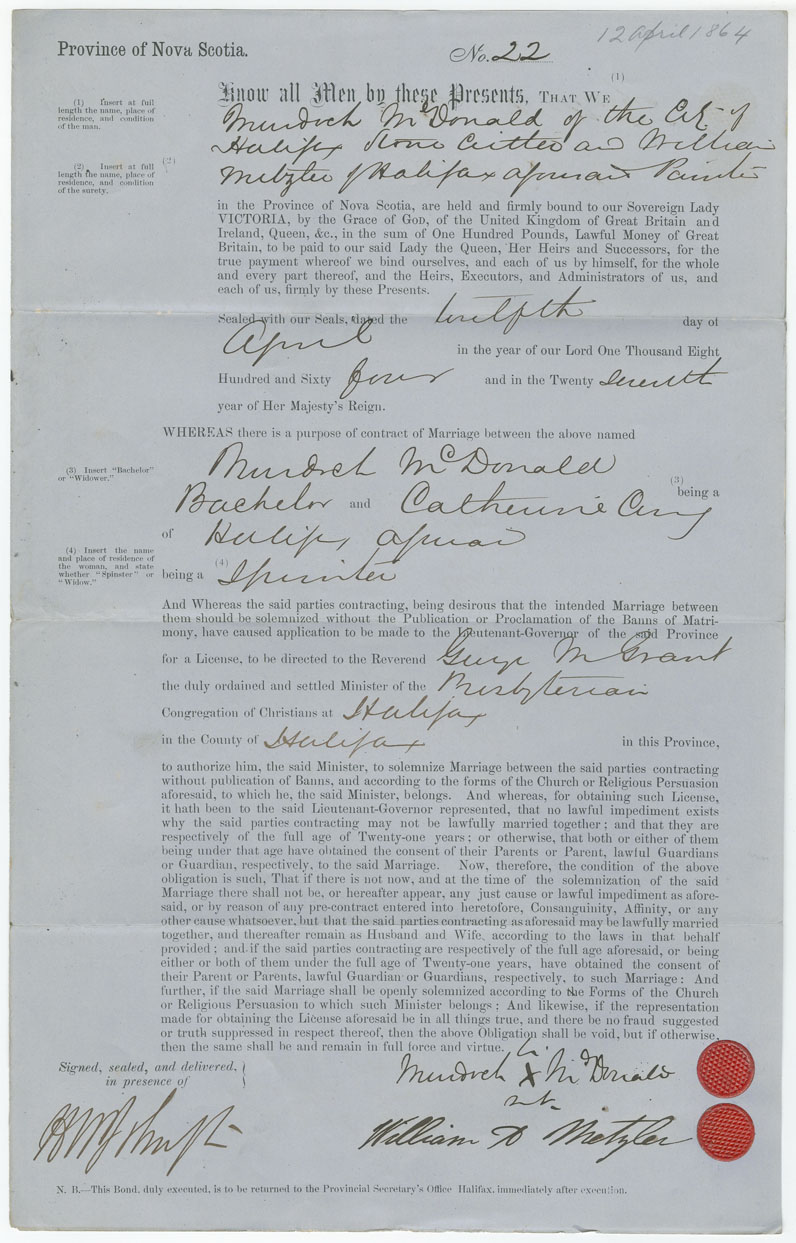 12 April 1864
Province of Nova Scotia.
No. 22
(1)
Know all Men by these Presents, THAT WE
(1) Insert at full
length the name, place of
residence, and condition
of the man.
Murdoch McDonald of the City of
Halifax Stone Cutter and William
(2) Insert at full
length the name, place of
residence, and condition
of the surety.
(2)
Metzler of Halifax aforesaid Painter
in the Province of Nova Scotia, are held and firmly bound to our Sovereign Lady
VICTORIA, by the Grace of God, of the United Kingdom of Great Britain and
Ireland, Queen, &c., in the sum of One Hundred Pounds, Lawful Money of Great
Britain, to be paid to our said Lady the Queen, Her Heirs and Successors, for the
true payment whereof we bind ourselves, and each of us by himself, for the whole
and every part thereof, and the Heirs, Executors, and Administrators of us, and
each of us, firmly by these Presents.
Sealed with our Seals, dated the twelfth day of
April in the year of our Lord One Thousand Eight
Hundred and Sixty four and in the Twenty seventh
year of Her Majesty's Reign.
WHEREAS there is a purpose of contract of Marriage between the above named
(3) Insert "Bachelor"
or "Widower."
Murdoch McDonald
(3)
being a
Bachelor and Catherine
of Halifax aforesaid
(4) Insert the name
and place of residence of
the woman, and state
whether "Spinster" or
"Widow."
(4)
being a Spinster
And Whereas the said parties contracting, being desirous that the intended Marriage between
them should be solemnized without the Publication or Proclamation of the Banns of Matri-
mony, have caused application to be made to the Lieutenant-Governor of the said Province
for a License, to be directed to the Reverend George M Grant
the duly ordained and settled Minister of the Presbyterian
Congregation of Christians at Halifax
in the County of Halifax in this Province,
to authorize him, the said Minister, to solemnize Marriage between the said parties contracting
without publication of Banns, and according to the forms of the Church or Religious Persuasion
aforesaid, to which he, the said Minister, belongs. And whereas, for obtaining such License,
it hath been to the said Lieutenant-Governor represented, that no lawful impediment exists
why the said parties contracting may not be lawfully married together; and that they are
respectively of the full age of Twenty-one years; or otherwise, that both or either of them
being under that age have obtained the consent of their Parents or Parent, lawful Guardians
or Guardian, respectively, to the said Marriage. Now, therefore, the condition of the above
obligation is such, That if there is not now, and at the time of the solemnization of the said
Marriage there shall not be, or hereafter appear, any just cause or lawful impediment as afore-
said, or by reason of any pre-contract entered into heretofore, Consanguinity, Affinity, or any
other cause whatsoever, but that the said parties contracting as aforesaid may be lawfully married
together, and thereafter remain as Husband and Wife, according to the laws in that behalf
provided; and if the said parties contracting are respectively of the full age aforesaid, or being
either or both of them under the full age of Twenty-one years, have obtained the consent of
their Parent or Parents, lawful Guardian or Guardians, respectively, to such Marriage: And
further, if the said Marriage shall be openly solemnized according to the Forms of the Church
or Religious Persuasion to which such Minister belongs; And likewise, if the representation
made for obtaining the License aforesaid be in all things true, and there be no fraud suggested
or truth suppressed in respect thereof, then the above Obligation shall be void, but if otherwise,
then the same shall be and remain in full force and virtue.
Signed, sealed, and delivered,
in presence of
Murdoch X McDonald
William D Metzler
N. B.—This Bond, duly executed, is to be returned to the Provincial Secretary's Office Halifax, immediately after execution.